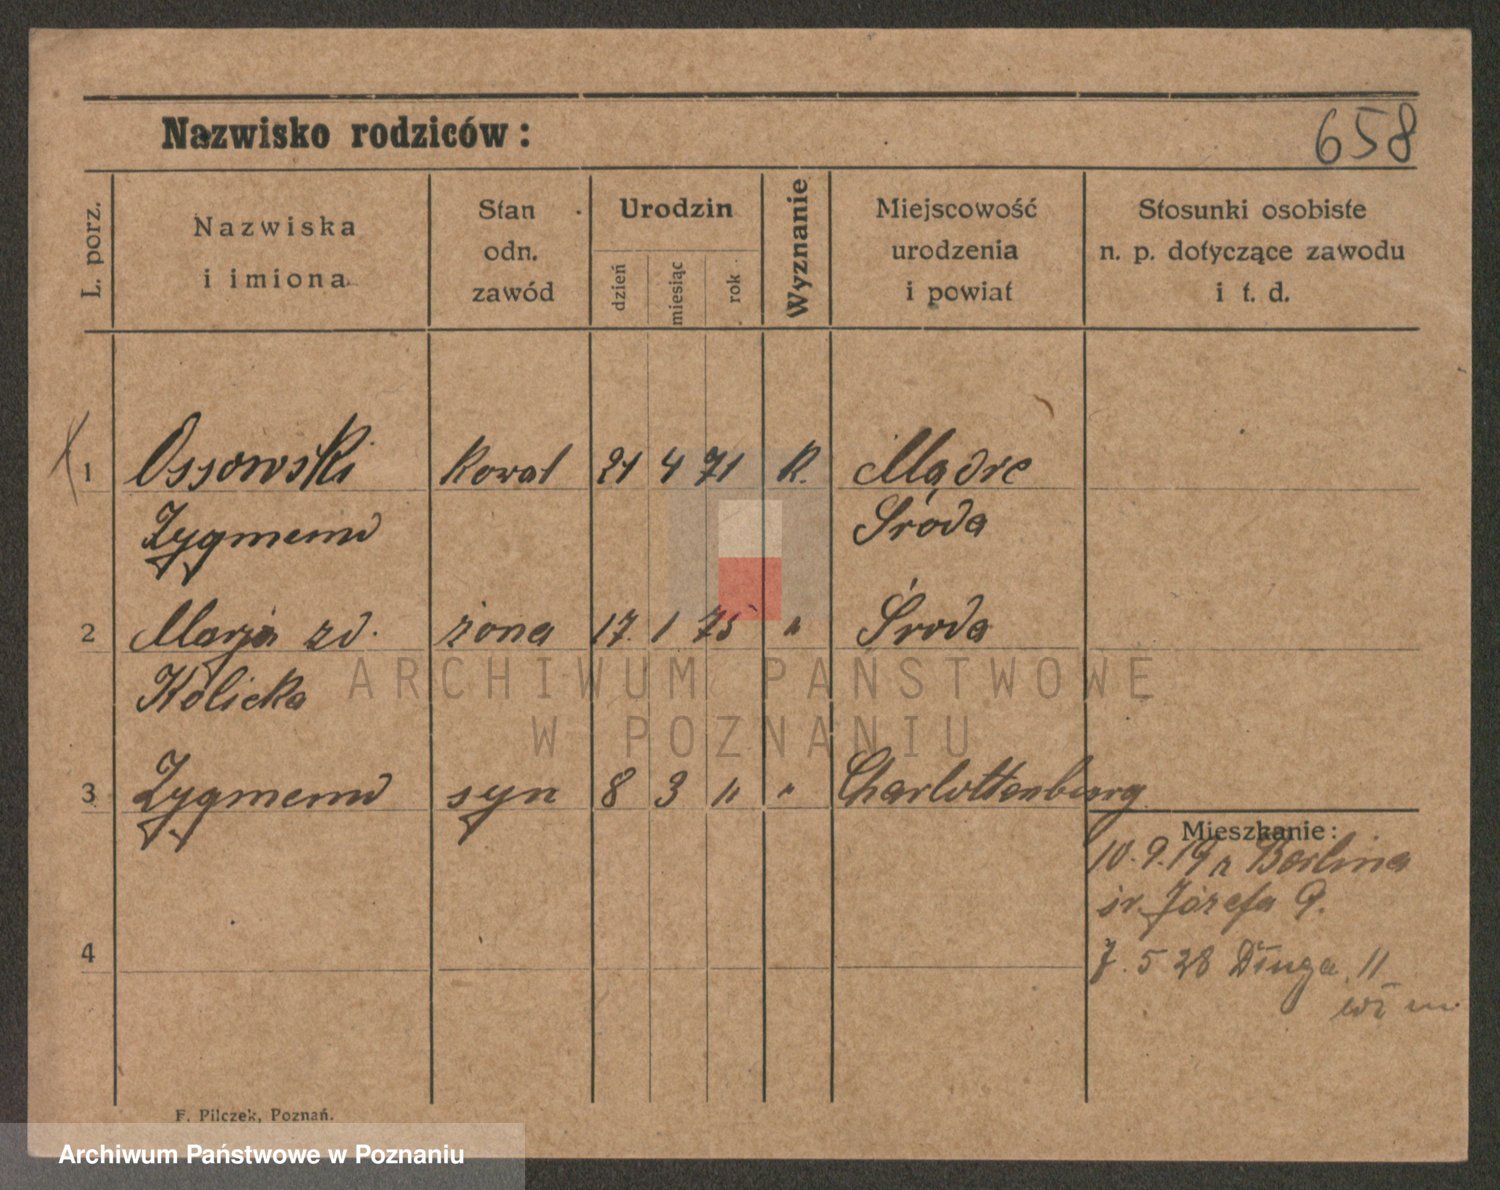 Nazwisko rodziców:
658
L. porz.
Nazwiska
i imiona
Stan
odn.
zawód
Urodzin
dzień
miesiąc
rok
Wyznanie
Miejscowość
urodzenia
i powiat
Stosunki osobiste
n. p. dotyczące zawodu
i t. d.
1 Ossowski kowal 21 4 71 K. Mądre
Zygmund Środa
2 Marja zd. żona 17. 1 75 " Środa
Kolicka
3 Zygmund syn 8 3 " " Charlottenburg
Mieszkanie:
10. 9. 19 z Berlina
św. Józefa 9.
4
7. 5 28 Długa 11
F. Pilczek, Poznań.
ARCHIWUM PAŃSTWOWE
W POZNANIU
Archiwum Państwowe w Poznaniu